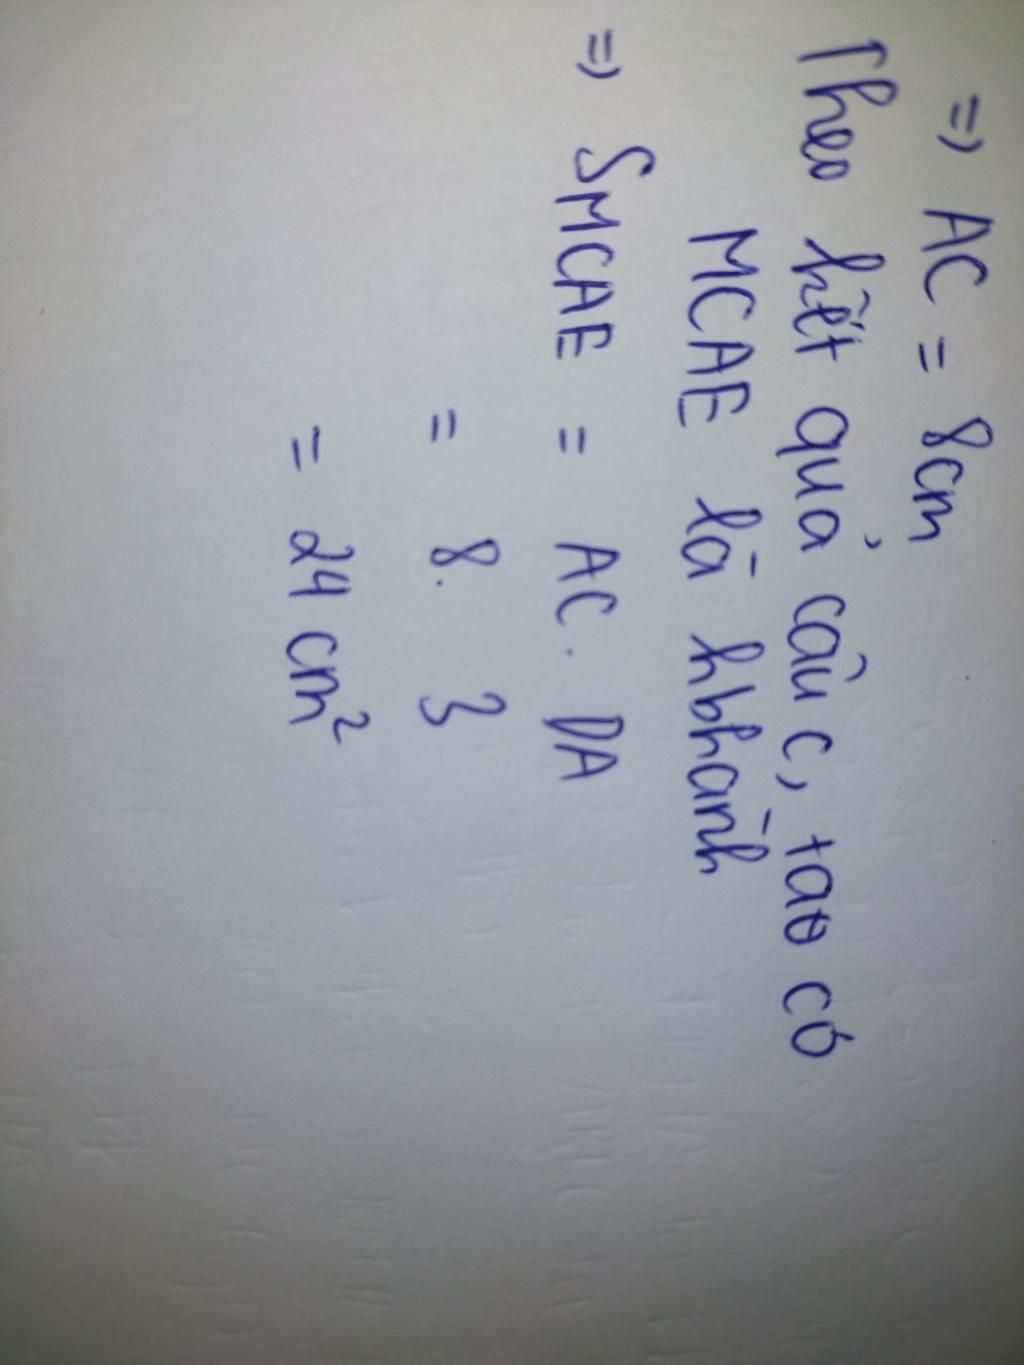 => AC = 8cm
Theo kết quả câu c, tao có
MCAE là hbhành
=> SMCAE = AC. DA
= 8. 3
= 24 cm²